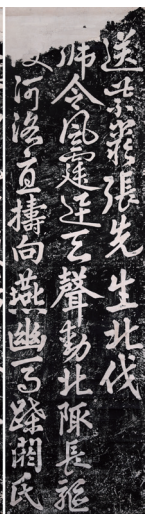 送紫巖張先生北伐
號令風霆迅天聲動北陬長驅
渡河洛直擣向燕幽馬蹀閼氏